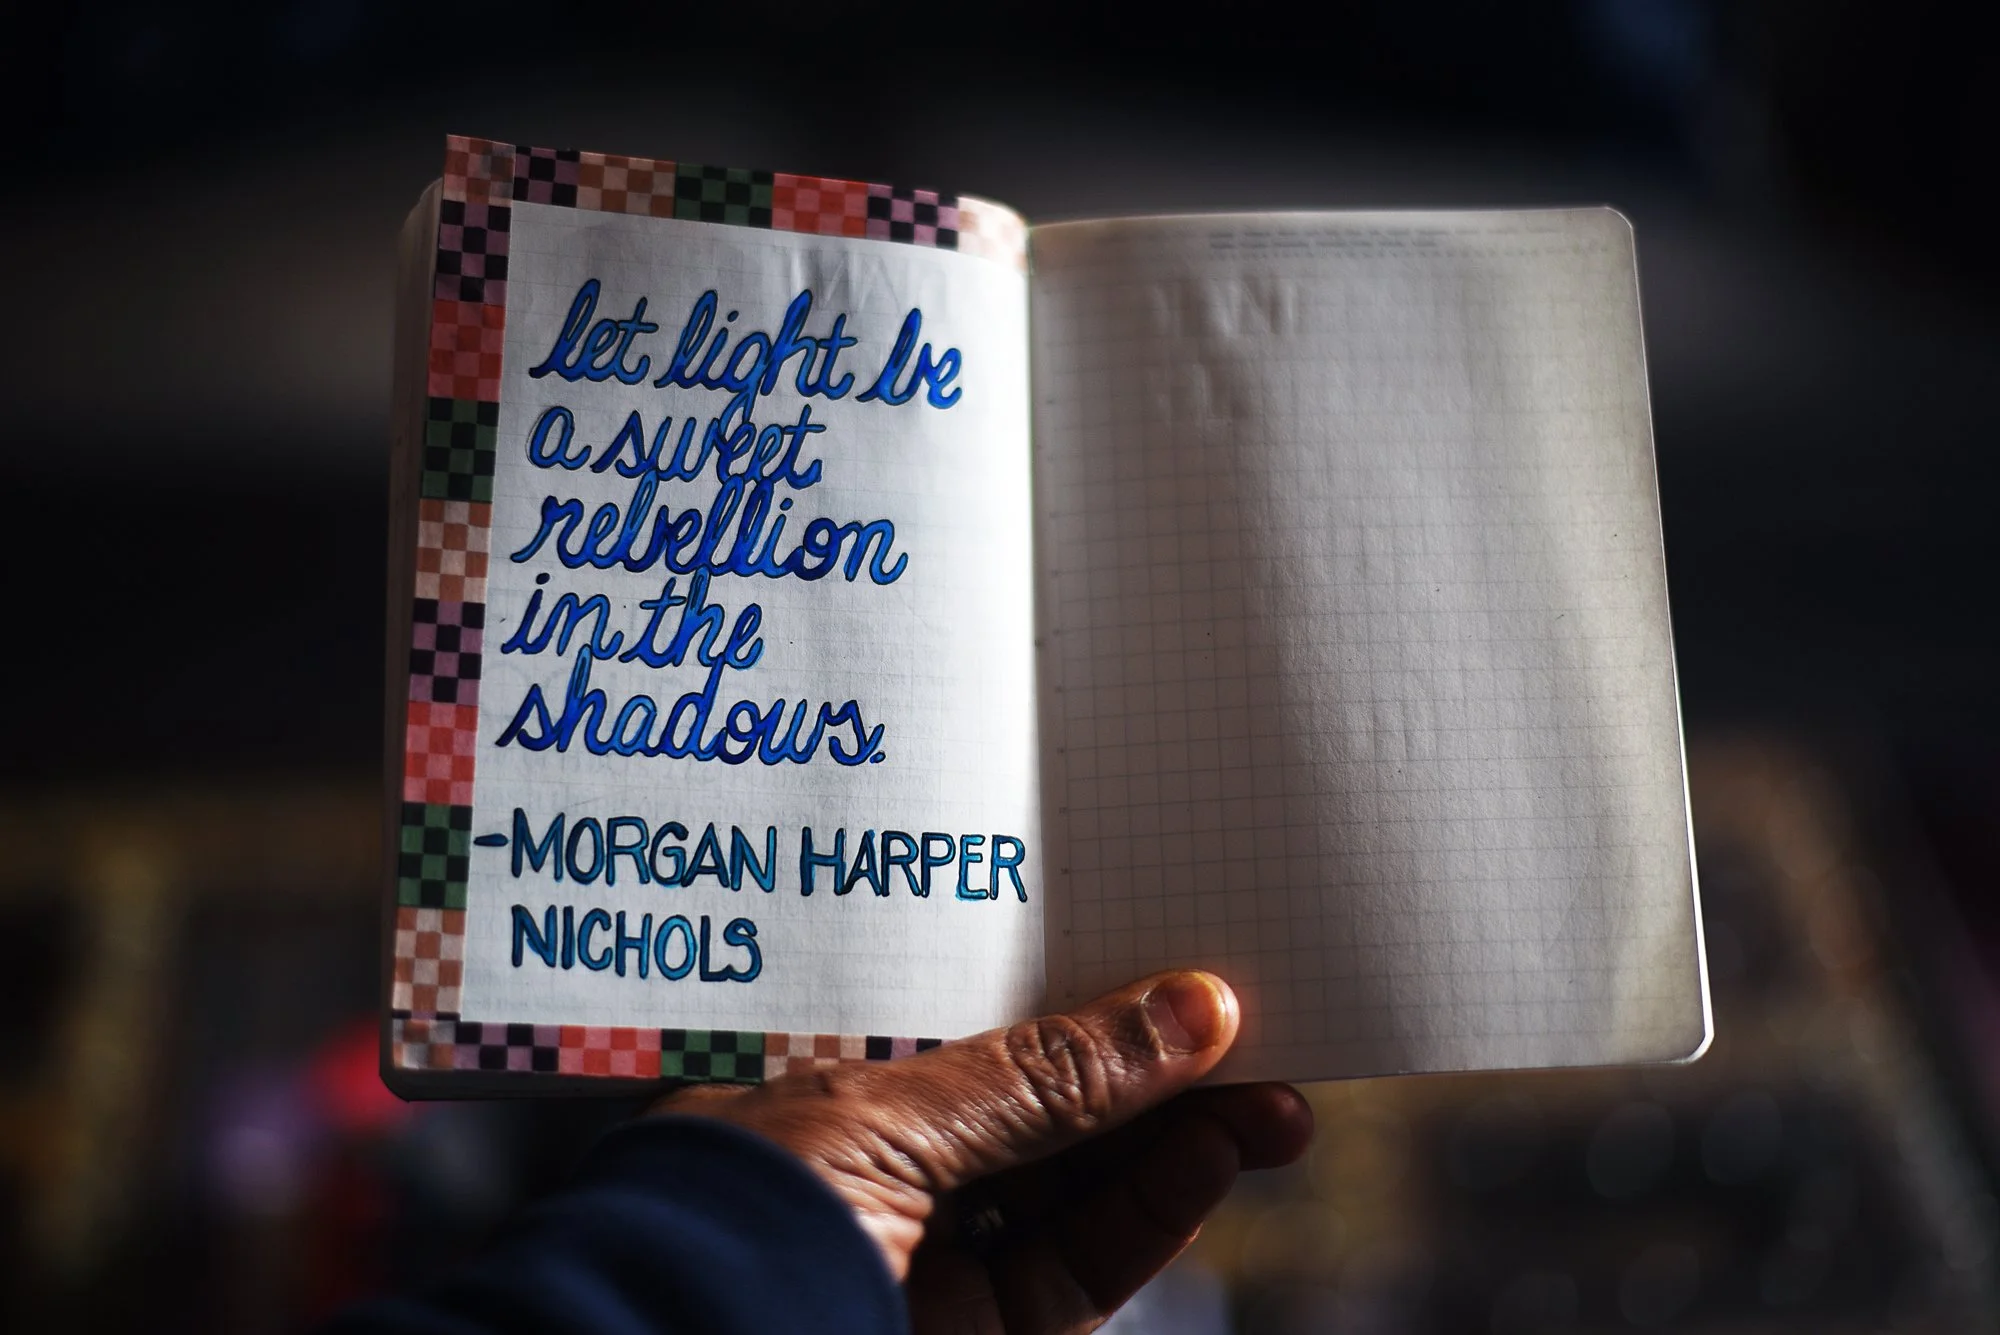 let light be
a sweet
rebellion
in the
shadows.
-MORGAN HARPER
NICHOLS